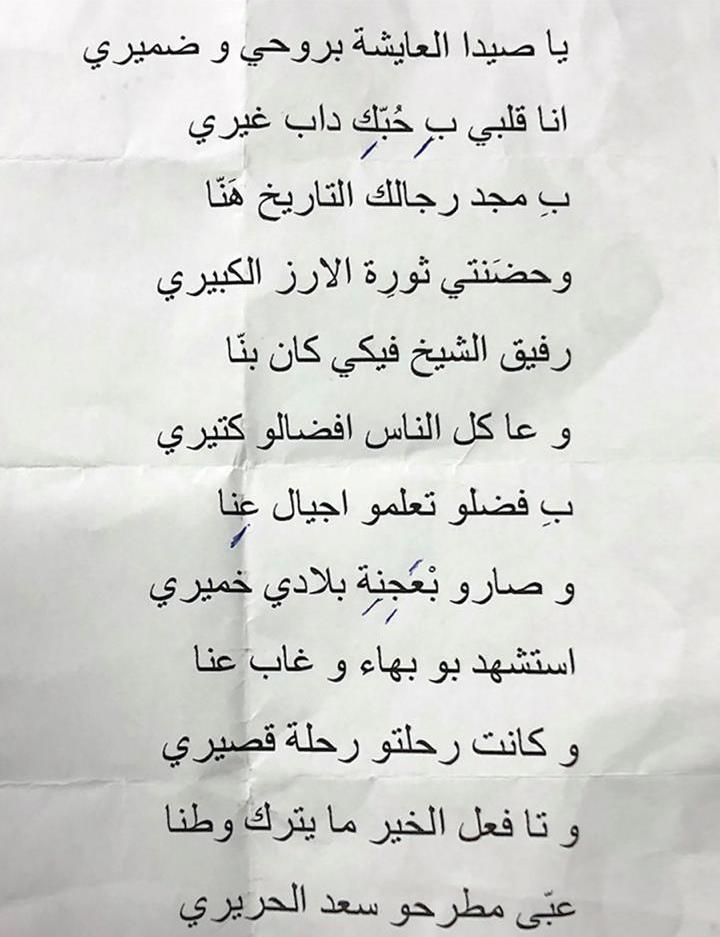 يا صيدا العايشة بروحي و ضميري
انا قلبي بِ حُبّكِ داب غيري
بِ مجد رجالك التاريخ هَنّا
وحضَنتي ثورِة الارز الكبيري
رفيق الشيخ فيكي كان بنّا
و عا كل الناس افضالو كتيري
بِ فضلو تعلمو اجيال عِنا
و صارو بْعَجِنِة بلادي خميري
استشهد بو بهاء و غاب عنا
و كانت رحلتو رحلة قصيري
و تا فعل الخير ما يترك وطنا
عبّى مطرحو سعد الحريري